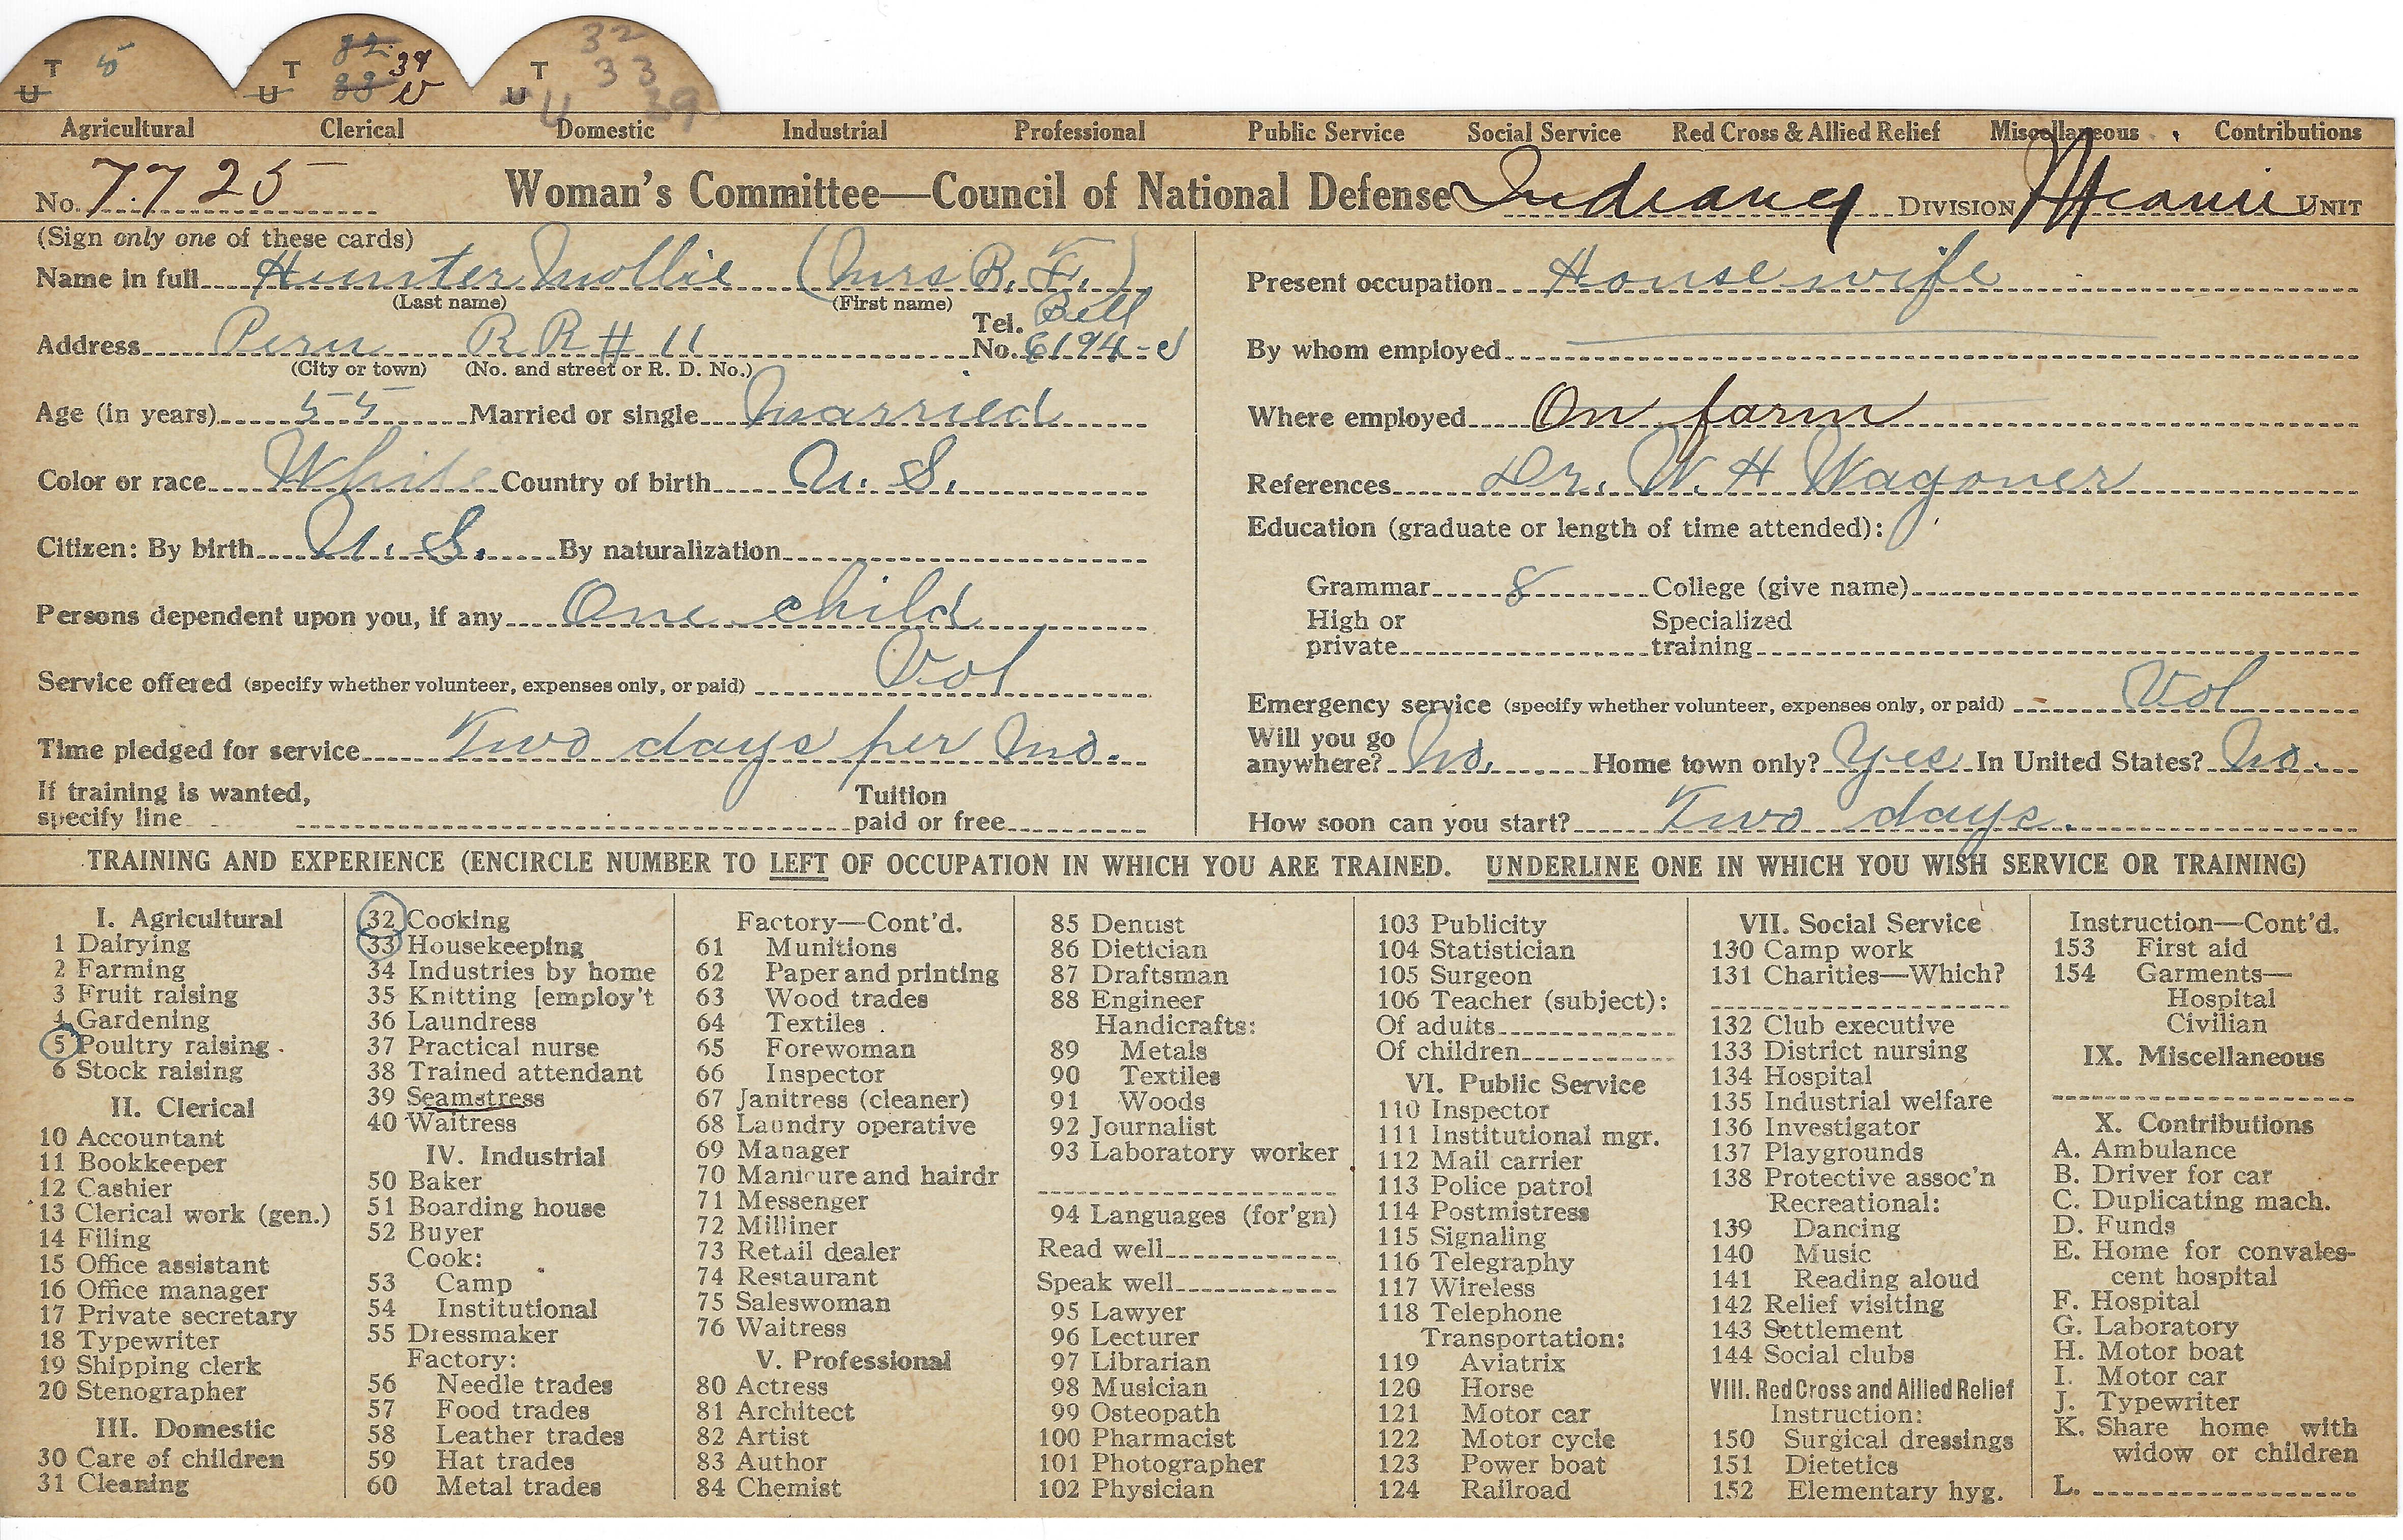 T 5 T 82 39 T 32
U U 83 U 33
U 39
Agricultural Clerical Domestic Industrial Professional Public Service Social Service Red Cross & Allied Relief Miscellaneous Contributions
No. 7725 Woman's Committee—Council of National Defense Indiana DIVISION Miami UNIT
(Sign only one of these cards)
Name in full Hunter Mollie (Mrs B. F.)
(Last name) (First name)
Address Peru RR # 11 Tel. No. Bell 6194-J
(City or town) (No. and street or R. D. No.)
Age (in years) 55 Married or single Married
Color or race White Country of birth U. S.
Citizen: By birth U. S. By naturalization
Persons dependent upon you, if any One child
Service offered (specify whether volunteer, expenses only, or paid) Vol
Time pledged for service Two days per mo.
If training is wanted, specify line Tuition paid or free
Present occupation Housewife
By whom employed
Where employed On farm
References Dr. W. H Wagoner
Education (graduate or length of time attended):
Grammar 8 College (give name)
High or private Specialized training
Emergency service (specify whether volunteer, expenses only, or paid) Vol
Will you go anywhere? No. Home town only? Yes In United States? No.
How soon can you start? Two days.
TRAINING AND EXPERIENCE (ENCIRCLE NUMBER TO LEFT OF OCCUPATION IN WHICH YOU ARE TRAINED. UNDERLINE ONE IN WHICH YOU WISH SERVICE OR TRAINING)
I. Agricultural
1 Dairying
2 Farming
3 Fruit raising
4 Gardening
5 Poultry raising
6 Stock raising
II. Clerical
10 Accountant
11 Bookkeeper
12 Cashier
13 Clerical work (gen.)
14 Filing
15 Office assistant
16 Office manager
17 Private secretary
18 Typewriter
19 Shipping clerk
20 Stenographer
III. Domestic
30 Care of children
31 Cleaning
32 Cooking
33 Housekeeping
34 Industries by home
35 Knitting [employ't
36 Laundress
37 Practical nurse
38 Trained attendant
39 Seamstress
40 Waitress
IV. Industrial
50 Baker
51 Boarding house
52 Buyer
Cook:
53 Camp
54 Institutional
55 Dressmaker
Factory:
56 Needle trades
57 Food trades
58 Leather trades
59 Hat trades
60 Metal trades
Factory—Cont'd.
61 Munitions
62 Paper and printing
63 Wood trades
64 Textiles
65 Forewoman
66 Inspector
67 Janitress (cleaner)
68 Laundry operative
69 Manager
70 Manicure and hairdr
71 Messenger
72 Milliner
73 Retail dealer
74 Restaurant
75 Saleswoman
76 Waitress
V. Professional
80 Actress
81 Architect
82 Artist
83 Author
84 Chemist
85 Dentist
86 Dietician
87 Draftsman
88 Engineer
Handicrafts:
89 Metals
90 Textiles
91 Woods
92 Journalist
93 Laboratory worker
94 Languages (for'gn)
Read well
Speak well
95 Lawyer
96 Lecturer
97 Librarian
98 Musician
99 Osteopath
100 Pharmacist
101 Photographer
102 Physician
103 Publicity
104 Statistician
105 Surgeon
106 Teacher (subject):
Of adults
Of children
VI. Public Service
110 Inspector
111 Institutional mgr.
112 Mail carrier
113 Police patrol
114 Postmistress
115 Signaling
116 Telegraphy
117 Wireless
118 Telephone
Transportation:
119 Aviatrix
120 Horse
121 Motor car
122 Motor cycle
123 Power boat
124 Railroad
VII. Social Service
130 Camp work
131 Charities—Which?
132 Club executive
133 District nursing
134 Hospital
135 Industrial welfare
136 Investigator
137 Playgrounds
138 Protective assoc'n
Recreational:
139 Dancing
140 Music
141 Reading aloud
142 Relief visiting
143 Settlement
144 Social clubs
VIII. Red Cross and Allied Relief
Instruction:
150 Surgical dressings
151 Dietetics
152 Elementary hyg.
Instruction—Cont'd.
153 First aid
154 Garments—
Hospital
Civilian
IX. Miscellaneous
X. Contributions
A. Ambulance
B. Driver for car
C. Duplicating mach.
D. Funds
E. Home for convales-
cent hospital
F. Hospital
G. Laboratory
H. Motor boat
I. Motor car
J. Typewriter
K. Share home with
widow or children
L.